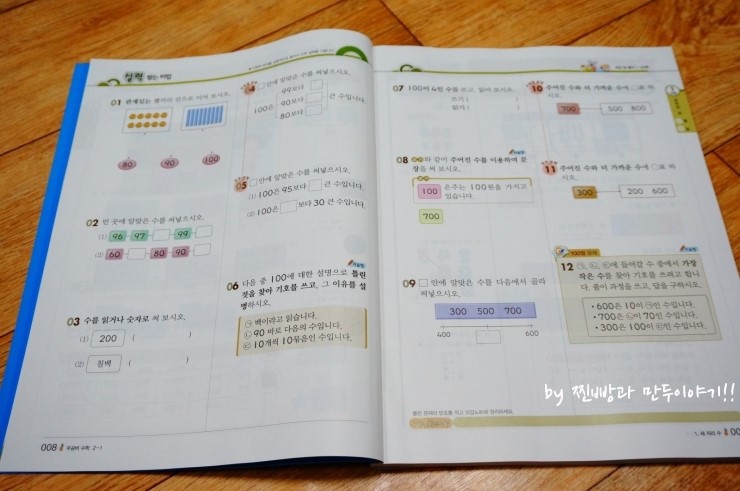 실력 쌓는 비법
01 관계있는 것끼리 선으로 이어 보시오.
80 90 100
02 빈 곳에 알맞은 수를 써넣으시오.
(1) 96 97 99
(2) 60 80 90
03 수를 읽거나 숫자로 써 보시오.
(1) 200 ( )
(2) 칠백 ( )
008 2-1
안에 알맞은 수를 써넣으시오.
99보다
100은 90보다 큰 수입니다.
80보다
05 안에 알맞은 수를 써넣으시오.
(1) 100은 95보다 큰 수입니다.
(2) 100은 보다 30 큰 수입니다.
06 다음 중 100에 대한 설명으로 틀린
것을 찾아 기호를 쓰고, 그 이유를 설
명하시오.
㉠ 백이라고 읽습니다.
㉡ 90 바로 다음의 수입니다.
㉢ 10개씩 10묶음인 수입니다.
07 100이 4인 수를 쓰고, 읽어 보시오.
쓰기 ( )
읽기 ( )
08 와 같이 주어진 수를 이용하여 문
장을 써 보시오.
100 은주는 100원을 가지고
있습니다.
700
09 안에 알맞은 수를 다음에서 골라
써넣으시오.
300 500 700
400 600
10 주어진 수와 더 가까운 수에 ○표 하
시오.
700 500 800
11 주어진 수와 더 가까운 수에 ○표 하
시오.
300 200 600
12 ㉠, ㉡, ㉢에 들어갈 수 중에서 가장
작은 수를 찾아 기호를 쓰려고 합니
다. 풀이 과정을 쓰고, 답을 구하시오.
• 600은 10이 ㉠인 수입니다.
• 700은 ㉡이 70인 수입니다.
• 300은 100이 ㉢인 수입니다.
1. 세 자리 수 00
by 찐빵과 만두이야기!!